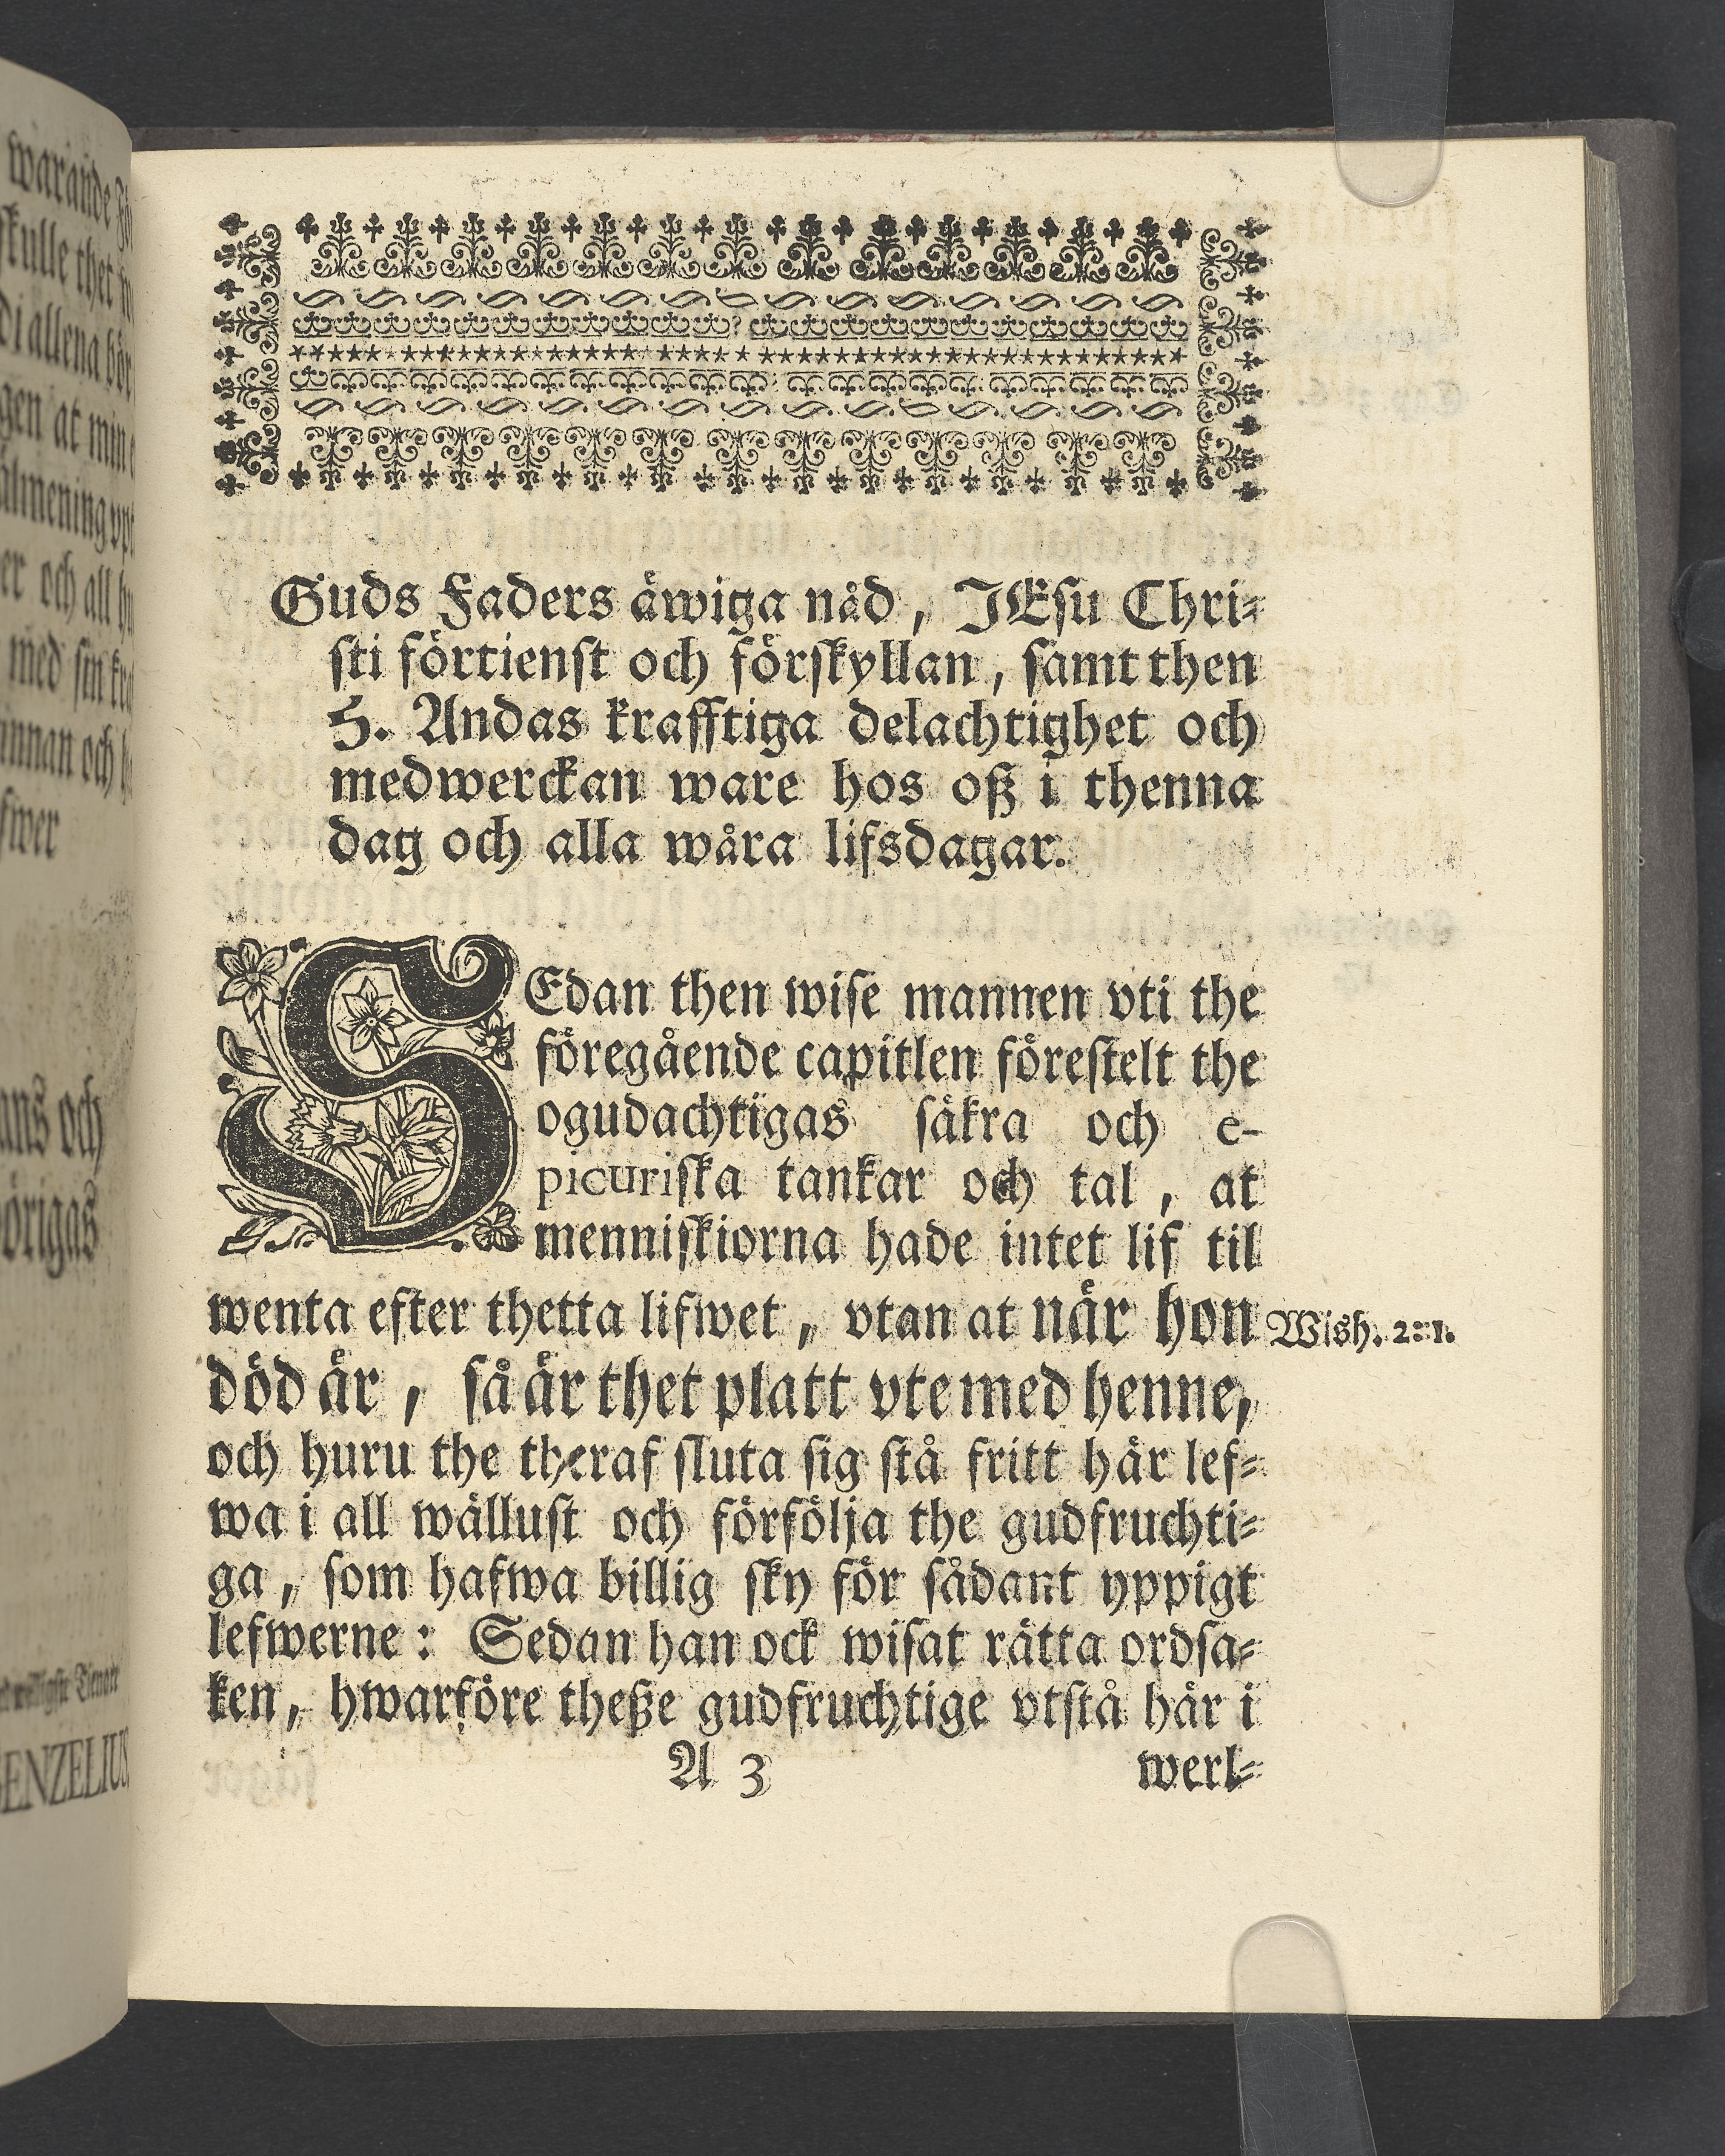 warande
skulle thet
di allena bör
gen at min
almening
er och all
med sin
innan och
fwer
ans och
örigas
ENZELIUS
Guds Faders äwiga nåd, JEsu Chri-
sti förtienst och förskyllan, samt then
H. Andas krafftiga delachtighet och
medwerckan ware hos oß i thenna
dag och alla wåra lifsdagar.
SEdan then wise mannen vti the
föregående capitlen förestelt the
ogudachtigas säkra och e-
picuriska tankar och tal, at
menniskiorna hade intet lif til
wenta efter thetta lifwet, vtan at när hon
Wish. 2:1.
död är, så är thet platt vte med henne,
och huru the theraf sluta sig stå fritt här lef-
wa i all wällust och förfölja the gudfruchti-
ga, som hafwa billig sky för sådant yppigt
lefwerne: Sedan han ock wisat rätta ordsa-
ken, hwarföre theße gudfruchtige vtstå här i
A 3 werl-